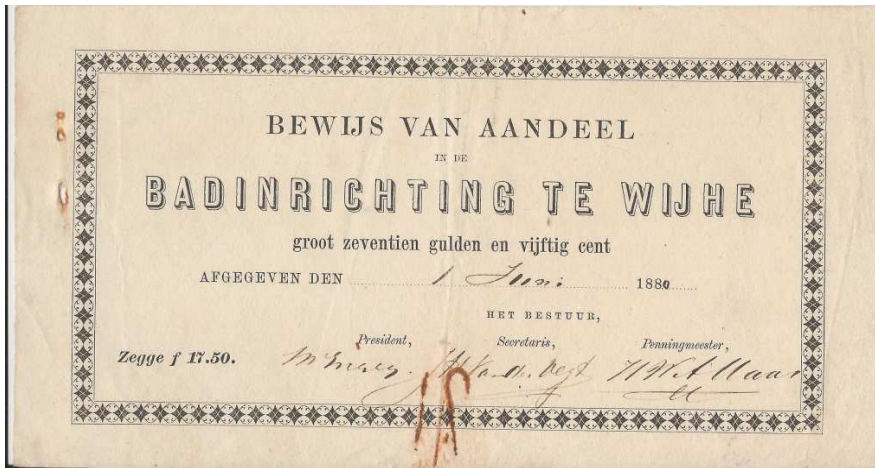 BEWIJS VAN AANDEEL
IN DE
BADINRICHTING TE WIJHE
groot zeventien gulden en vijftig cent
AFGEGEVEN DEN 1 Juni 1880
HET BESTUUR,
President, Secretaris, Penningmeester,
Zegge f 17.50.